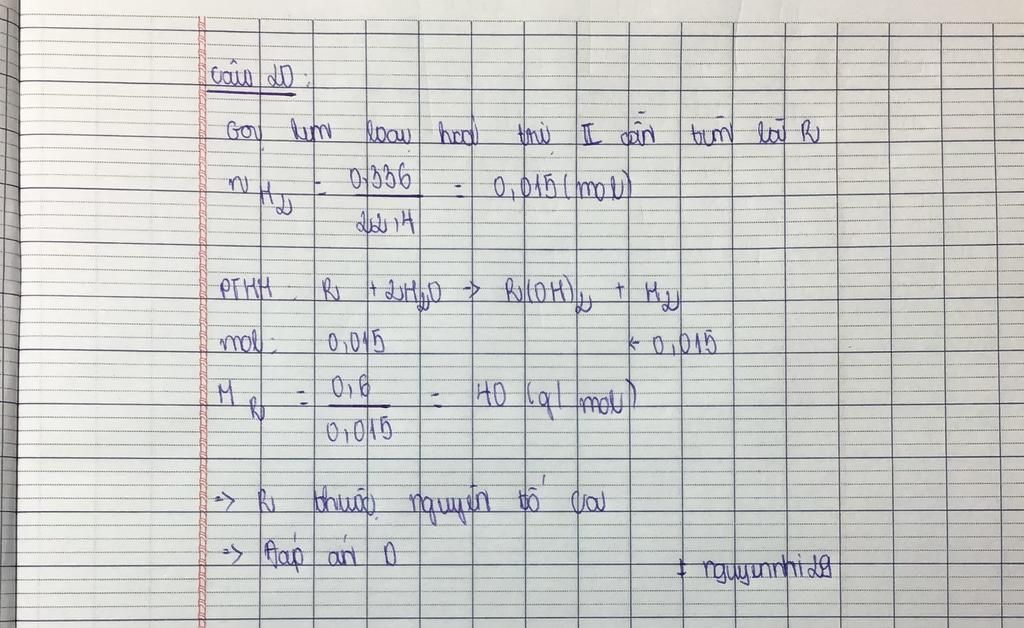 Câu 20:
Gọi kim loại hoá trị II cần tìm là R
n H2 = 0,336 / 22,4 = 0,015 (mol)
PTHH: R + 2H2O → R(OH)2 + H2
mol: 0,015 ← 0,015
M R = 0,6 / 0,015 = 40 (g/mol)
=> R thuộc nguyên tố Ca
=> Đáp án D
+ nguyunnhi29